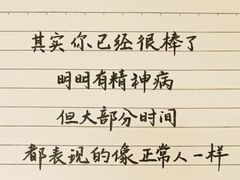 其实你已经很棒了
明明有精神病
但大部分时间
都表现的像正常人一样